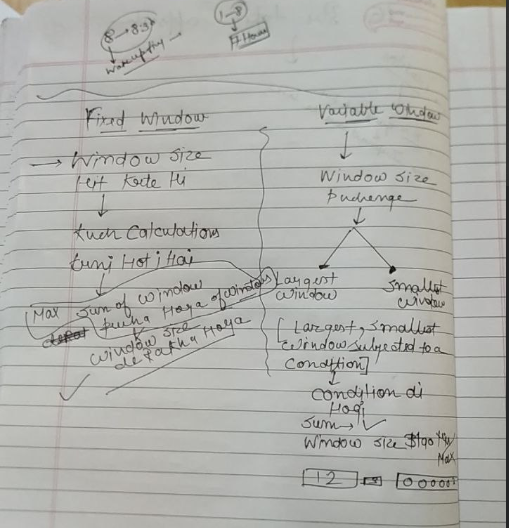 8 → 8:30
wakeup Hy
1-8
7 Hours
Fixed Window
→ Window Size
Hit Karte Hi
Kuch Calculations
Karni Hoti Hai
Max Sum of Window
Pucha Hoga of window
Window size
de rakha Hoga
Variable Window
Window Size
Puchenge
Largest
Window
Smallest
Window
[Largest, Smallest
Window Subjected to a
Condition]
Condition di
Hogi
Sum →
Window Size
Max
12